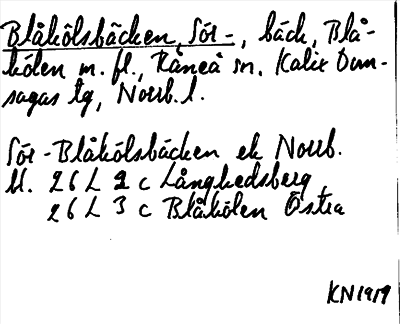 Blåkölsbäcken, Sör-, bäck, Blå-
kölen m. fl., Råneå sn, Kalix Dom-
sagas tg, Norrb. l.
Sör-Blåkölsbäcken ek Norrb.
bl. 26 L 2 c Långhedsberg
26 L 3 c Blåkölen Östra
KN1919